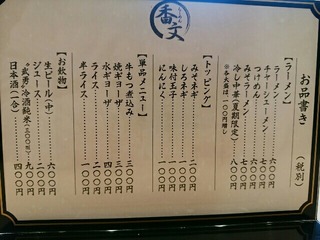 番文
お品書き
(税別)
【ラーメン】
ラーメン 六〇〇円
チャーシューメン
つけめん 七〇〇円
みそラーメン 七〇〇円
冷し中華(夏期限定) 八〇〇円
※各大盛は、一〇〇円増し
【トッピング】
みそネギ 二〇〇円
しろネギ
味付玉子 一〇〇円
にんにく 一〇〇円
【単品メニュー】
牛もつ煮込み 三〇〇円
焼ギョーザ 三〇〇円
水ギョーザ 四〇〇円
ライス 二〇〇円
半ライス 一〇〇円
【お飲物】
生ビール(中) 六〇〇円
ジュース 二〇〇円
"武勇"冷酒純米(三〇〇㎖) 九〇〇円
日本酒(一合) 四〇〇円